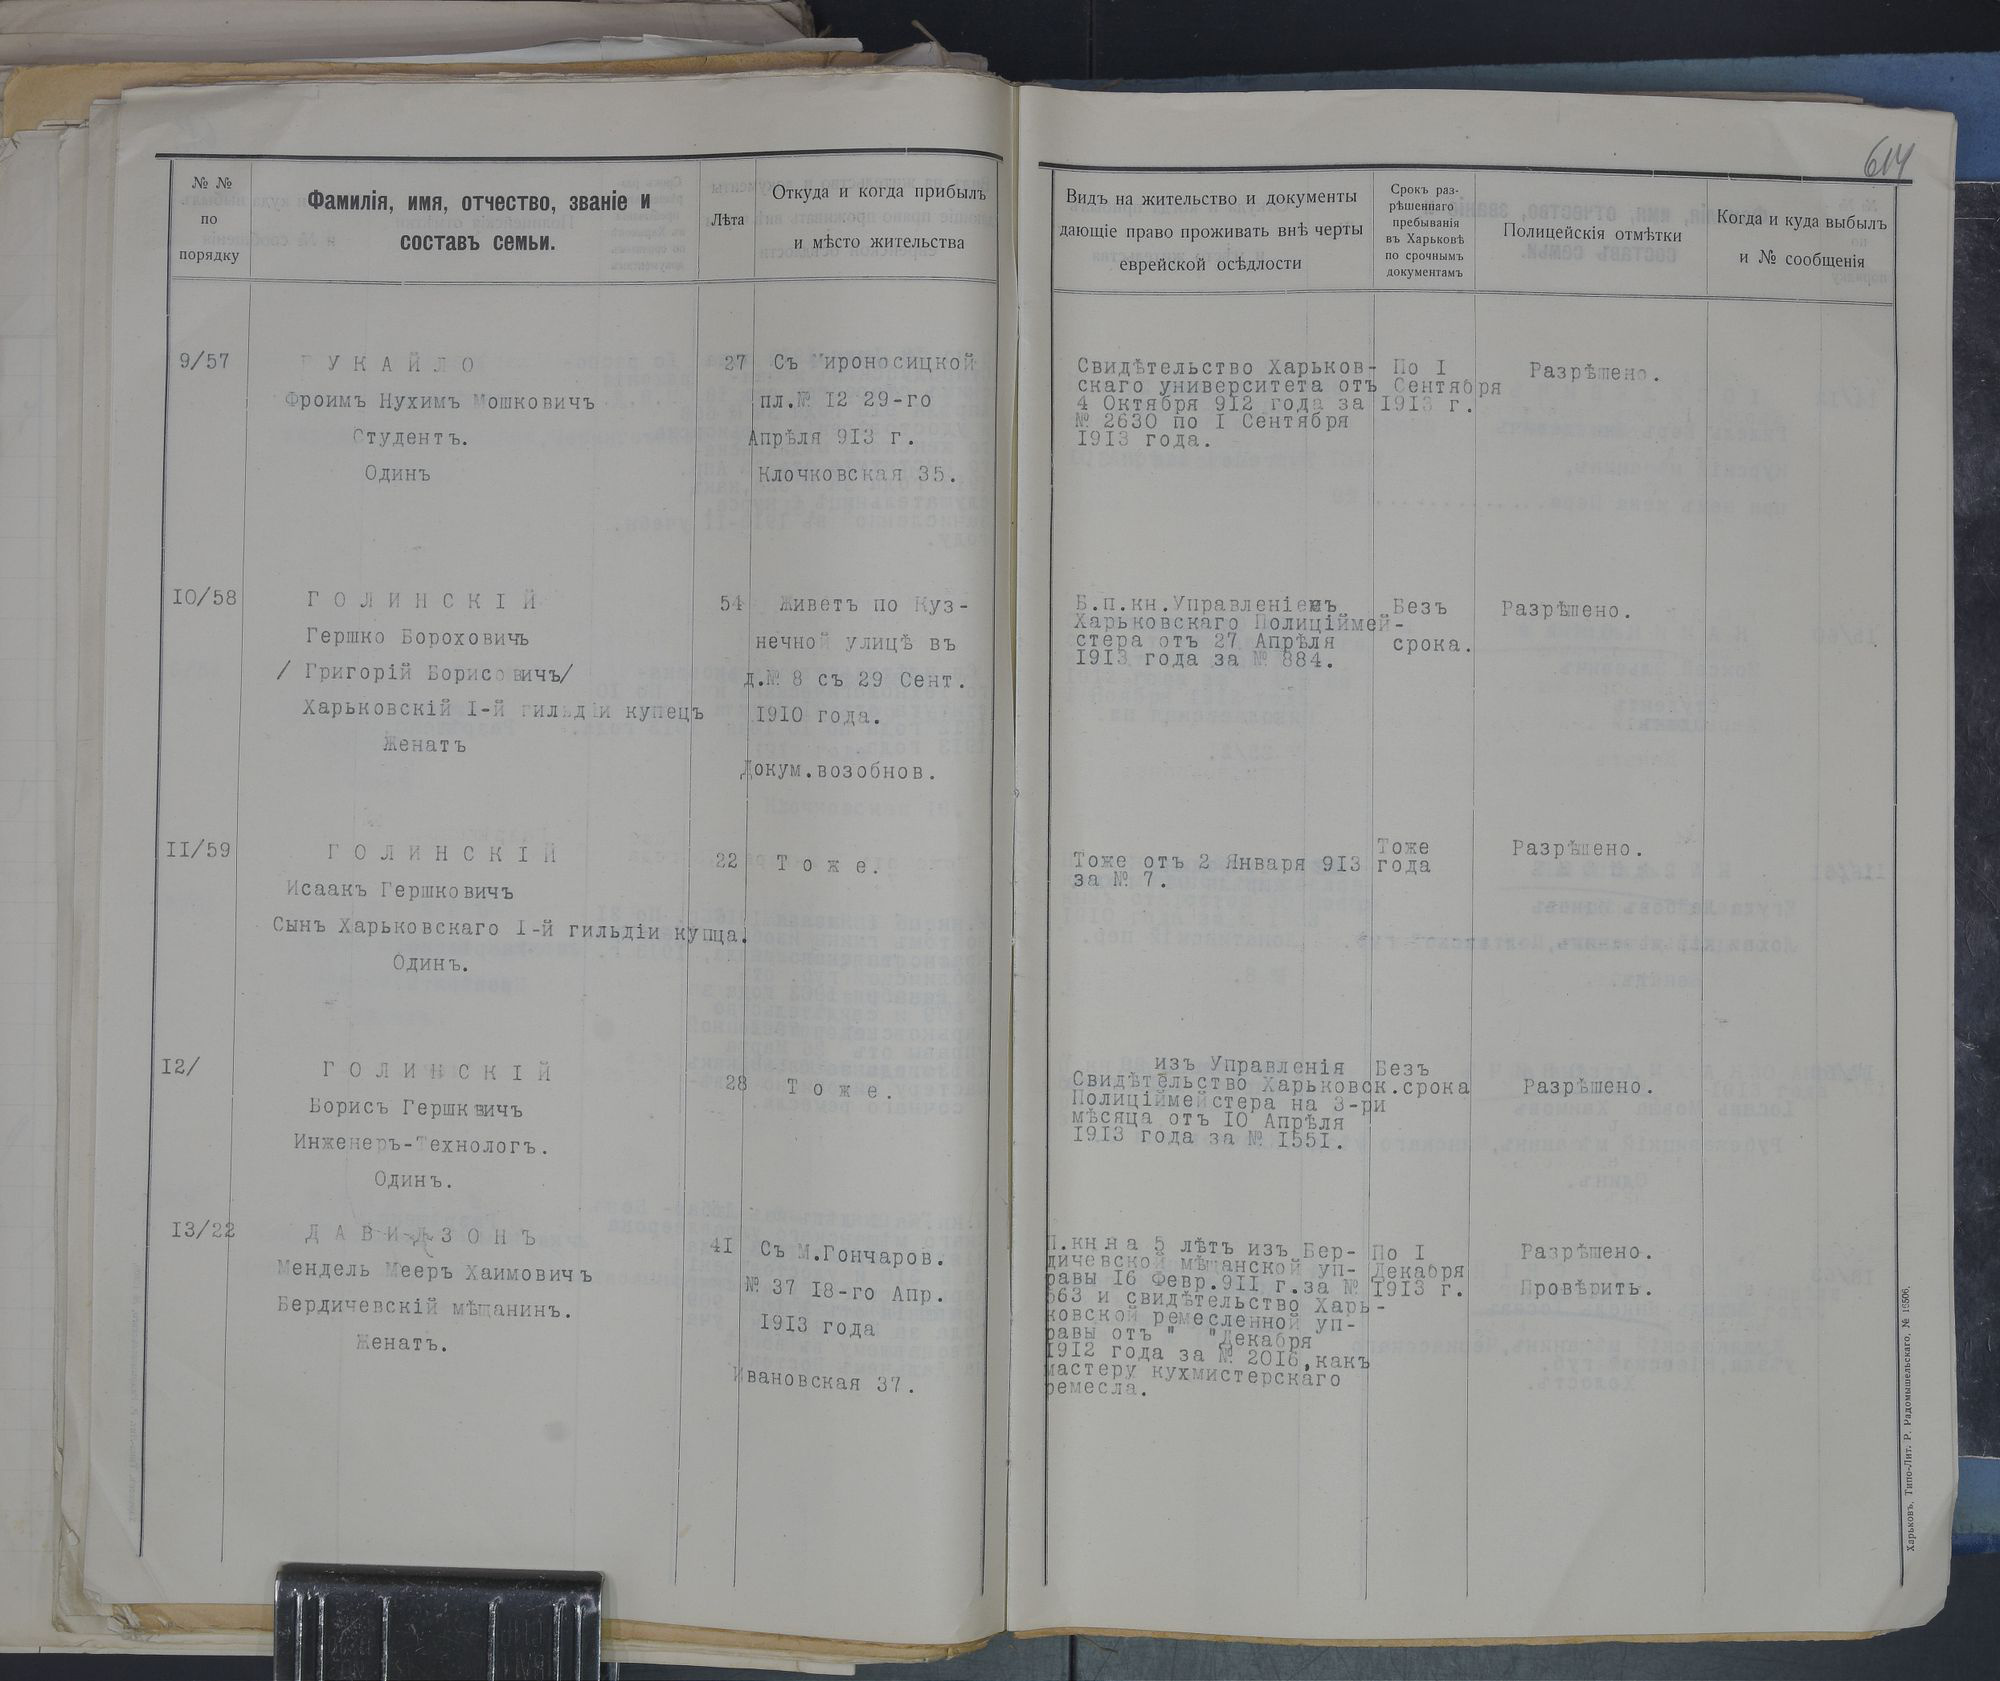 614
№ №
по
порядку
Фамилія, имя, отчество, званіе и
составъ семьи.
Лѣта
Откуда и когда прибылъ
и мѣсто жительства
Видъ на жительство и документы
дающіе право проживать внѣ черты
еврейской осѣдлости
Срокъ раз-
рѣшеннаго
пребыванія
въ Харьковѣ
по срочнымъ
документамъ
Полицейскія отмѣтки
Когда и куда выбылъ
и № сообщенія
9/57
УКАЙЛО
Фроимъ Нухимъ Мошковичъ
Студентъ.
Одинъ
27
Съ Мироносицкой
пл.№ I2 29-го
Апрѣля 9I3 г.
Клочковская 35.
Свидѣтельство Харьков-
скаго университета отъ
4 Октября 9I2 года за
№ 2630 по I Сентября
I9I3 года.
По I
Сентября
I9I3 г.
Разрѣшено.
I0/58
ГОЛИНСКІЙ
Гершко Бороховичъ
/ Григорій Борисовичъ/
Харьковскій I-й гильдіи купецъ
Женатъ
54
Живетъ по Куз-
нечной улицѣ въ
д.№ 8 съ 29 Сент.
I9I0 года.
Докум.возобнов.
Б.п.кн.Управленіемъ
Харьковскаго Полиціймей-
стера отъ 27 Апрѣля
I9I3 года за № 884.
Безъ
срока.
Разрѣшено.
II/59
ГОЛИНСКІЙ
Исаакъ Гершковичъ
Сынъ Харьковскаго I-й гильдіи купца.
Одинъ.
22
Тоже.
Тоже отъ 2 Января 9I3 года
за № 7.
Тоже
Разрѣшено.
I2/
ГОЛИНСКІЙ
Борисъ Гершквичъ
Инженеръ-Технологъ.
Одинъ.
28
Тоже.
изъ Управленія
Свидѣтельство Харьковск.
Полиціймейстера на 3-ри
мѣсяца отъ I0 Апрѣля
I9I3 года за № I55I.
Безъ
срока
Разрѣшено.
I3/22
ДАВИДЗОНЪ
Мендель Мееръ Хаимовичъ
Бердичевскій мѣщанинъ.
Женатъ.
4I
Съ М.Гончаров.
№ 37 I8-го Апр.
I9I3 года
Ивановская 37.
П.кн.на 5 лѣтъ изъ Бер-
дичевской мѣщанской уп-
равы I6 Февр.9II г.за №
563 и свидѣтельство Харь-
ковской ремесленной уп-
равы отъ " "Декабря
I9I2 года за № 20I6,какъ
мастеру кухмистерскаго
ремесла.
По I
Декабря
I9I3 г.
Разрѣшено.
Провѣрить.
Харьковъ, Типо-Лит. Р. Радомышельскаго, № 16506.